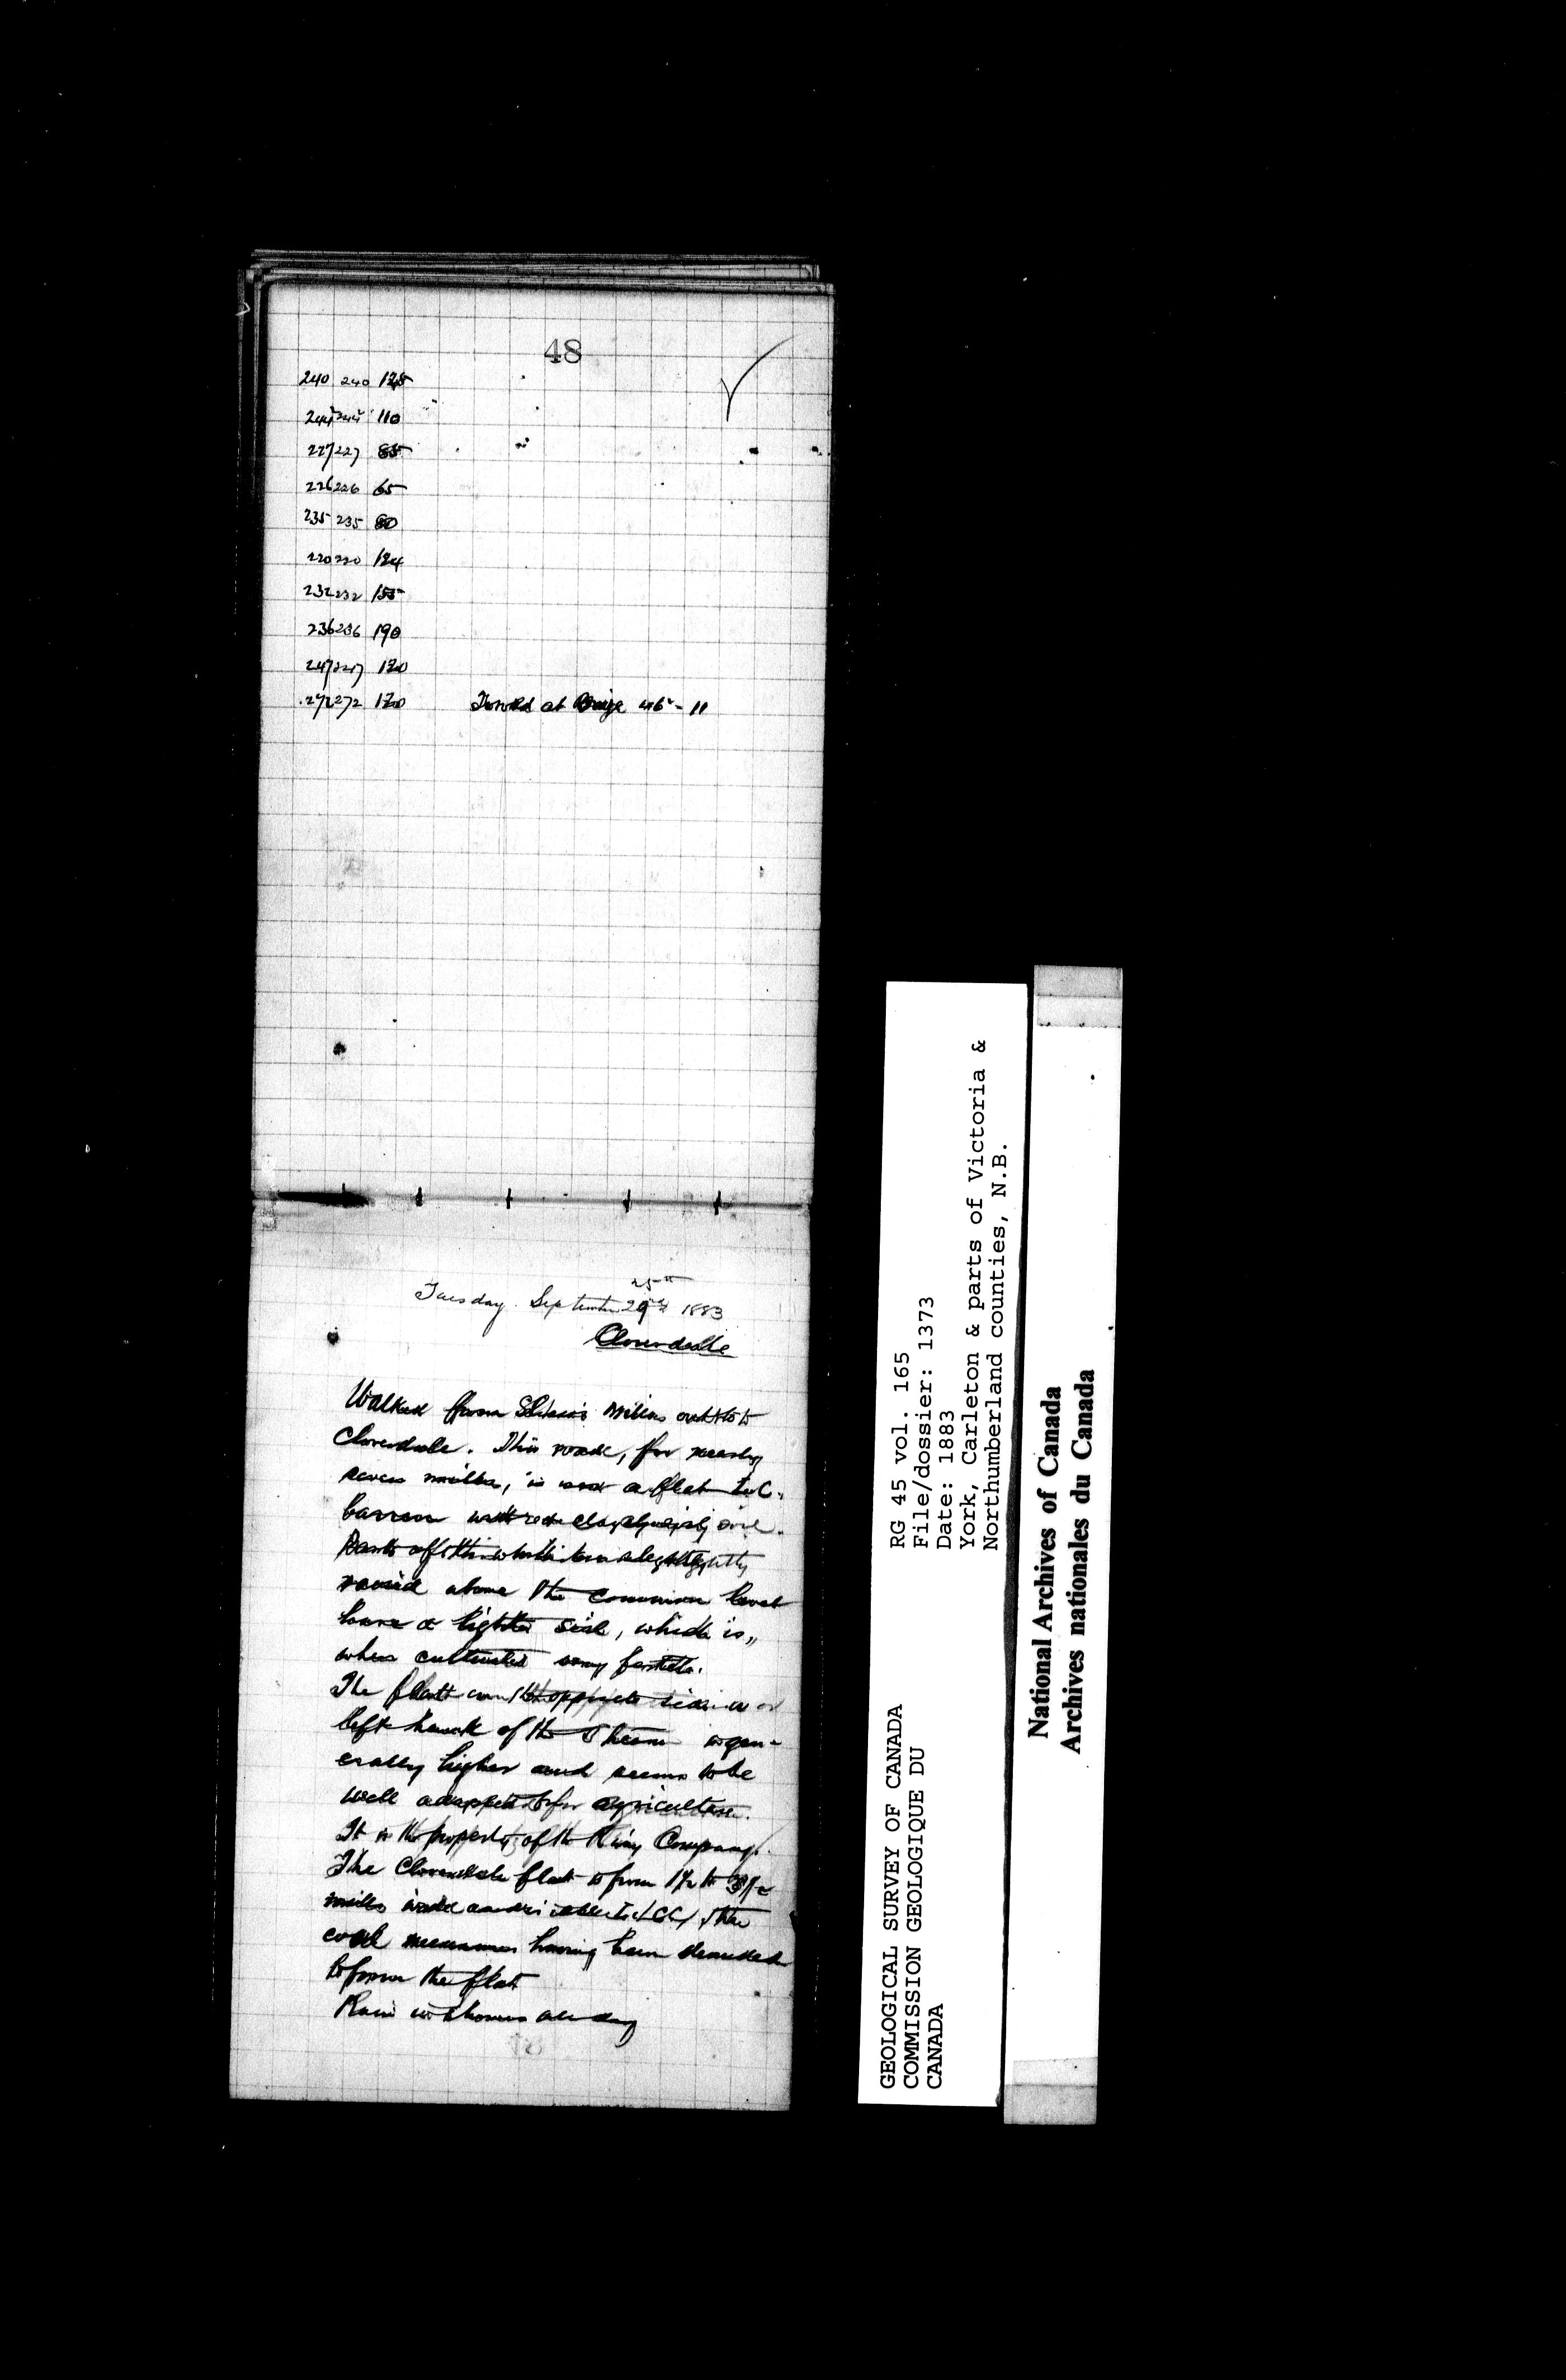 48
240 240 125
244 244 110
227 227 85
226 226 65
235 235 80
220 220 124
232 232 155
236 236 190
247 247 130
272 272 170 at 46° - 11
25th
Tuesday September 29th 1883
Cloverdale
Walked from Mills out to
Cloverdale. This road, for nearly
seven miles, is over a flat L.C.
barren with red clayey soil.
Parts of this which are slightly
raised above the common level
have a lighter soil, which is,
when cultivated very fertile.
The flat on the opposite side or
left bank of the stream is gen-
erally higher and seems to be
well adapted for agriculture.
It is the property of the R'way Company.
The Cloverdale flat is from 1½ to 3½
miles wide and is all L.C., the
coal measures having been denuded
to form the flat
Rain in showers all day
GEOLOGICAL SURVEY OF CANADA
COMMISSION GEOLOGIQUE DU
CANADA
RG 45 vol. 165
File/dossier: 1373
Date: 1883
York, Carleton & parts of Victoria &
Northumberland counties, N.B.
National Archives of Canada
Archives nationales du Canada